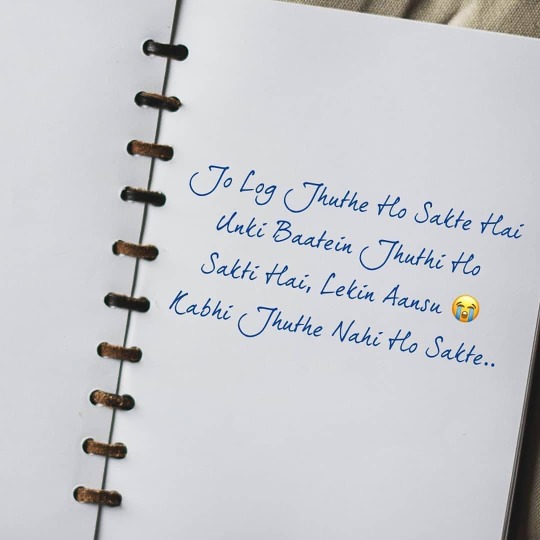 Jo Log Jhuthe Ho Sakte Hai
Unki Baatein Jhuthi Ho
Sakti Hai, Lekin Aansu 😭
Kabhi Jhuthe Nahi Ho Sakte..